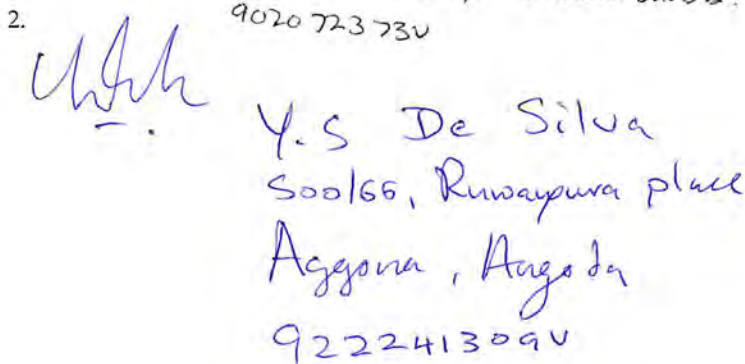 902072373V
2.
Y.S De Silva
500/66, Ruwanpura place
Aggona, Angoda
922241309V